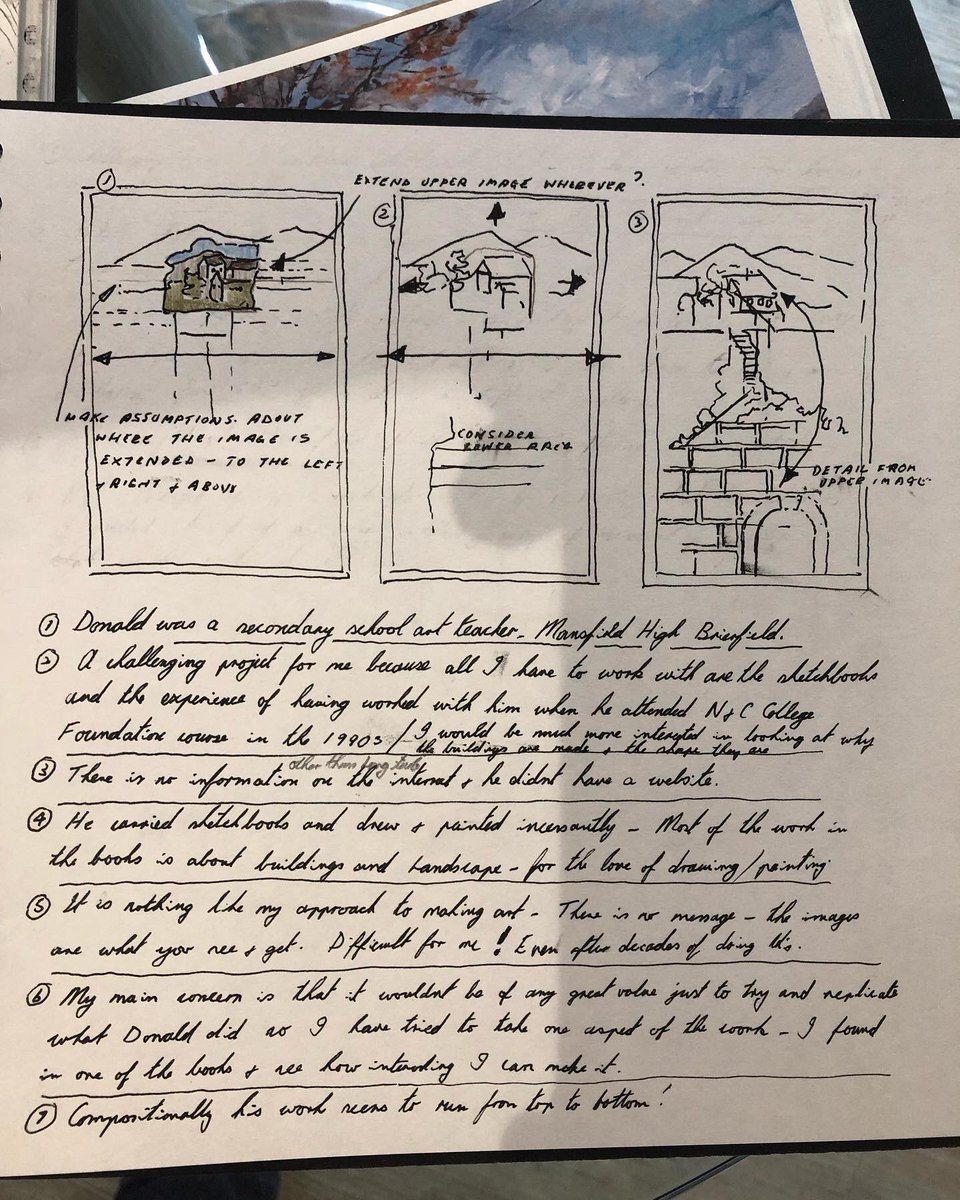 ①
EXTEND UPPER IMAGE WHEREVER?
②
③
MAKE ASSUMPTIONS ABOUT
WHERE THE IMAGE IS
EXTENDED - TO THE LEFT
+ RIGHT + ABOVE
CONSIDER
LOWER AREA
DETAIL FROM
UPPER IMAGE
① Donald was a secondary school art teacher - Mansfield High Brierfield.
② A challenging project for me because all I have to work with are the sketchbooks
and the experience of having worked with him when he attended N&C College
Foundation course in the 1990s / - I would be much more interested in looking at why
the buildings are made & the shape they are
other than
③ There is no information on the internet & he didnt have a website.
④ He carried sketchbooks and drew & painted incessantly - Most of the work in
the books is about buildings and Landscape - for the love of drawing/painting
⑤ It is nothing like my approach to making art - There is no message - the images
are what you see & get. Difficult for me! Even after decades of doing this.
⑥ My main concern is that it wouldnt be of any great value just to try and replicate
what Donald did so I have tried to take one aspect of the work - I found
in one of the books & see how interesting I can make it.
⑦ Compositionally his work seems to run from top to bottom!